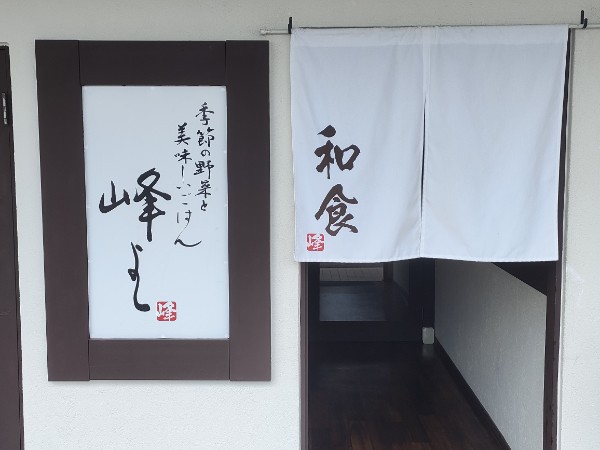 季節の野菜と
美味しいごはん
峰よし
峰
和食
峰